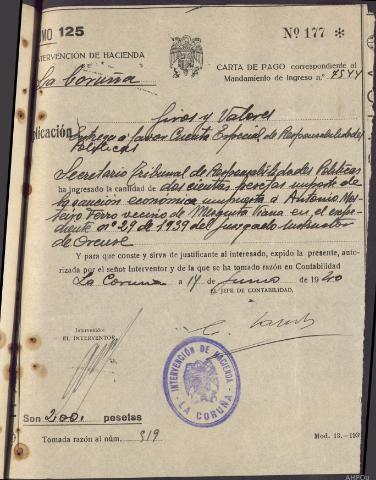 MO 125
Nº 177 *
INTERVENCIÓN DE HACIENDA
La Coruña
CARTA DE PAGO correspondiente al
Mandamiento de Ingreso n.º 4544
Giros y Valores
plicación Entrega a favor Cuenta Especial de Responsabilidades
Politicas
Secretario Tribunal de Responsabilidades Politicas
ha ingresado la cantidad de doscientas pesetas importe de
la sanción económica impuesta a Antonio Mos-
teiro Ferro vecino de Mezquita Viana en el expe-
diente nº 29 de 1939 del juzgado instructor
de Orense
Y para que conste y sirva de justificante al interesado, expido la presente, auto-
rizada por el señor Interventor y de la que se ha tomado razón en Contabilidad
La Coruña a 14 de Junio de 1940
EL JEFE DE CONTABILIDAD,
Intervenido:
EL INTERVENTOR
INTERVENCIÓN DE HACIENDA
LA CORUÑA
Son 200. pesetas
Tomada razón al núm. 519
Mod. 13.-193
AHPOu